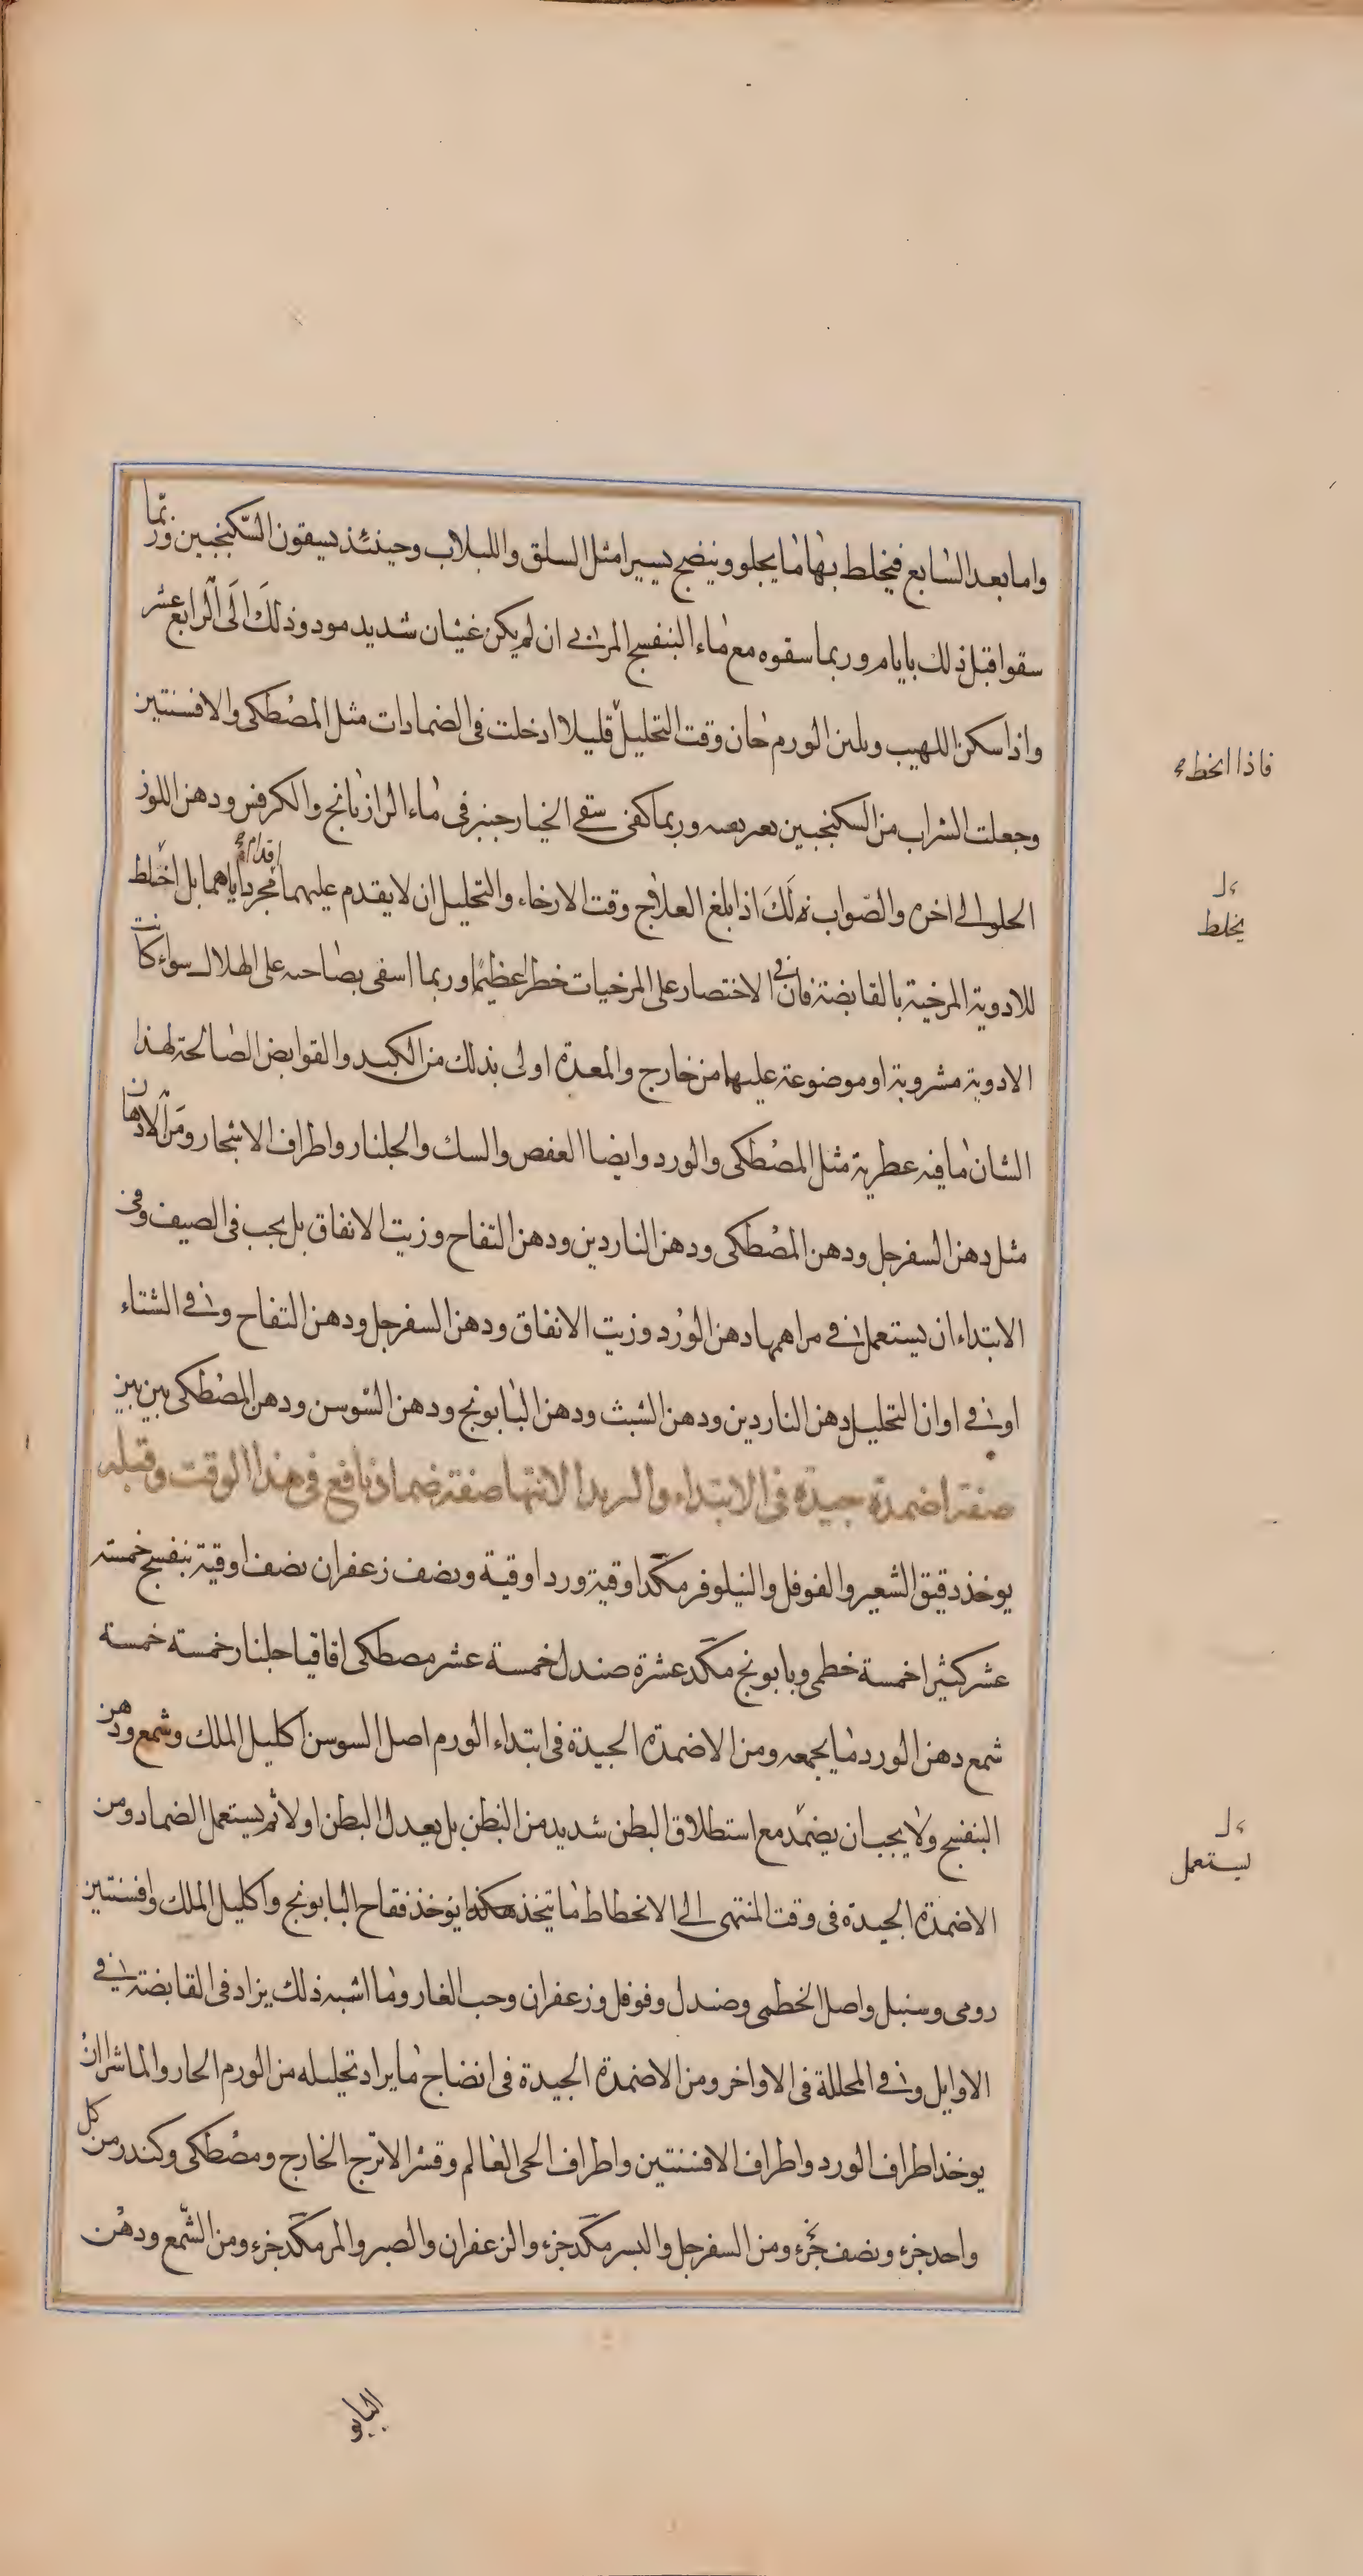 واما بعد السابع فيخلط بها ما يجلو وينضج يسيرا مثل السلق واللبلاب وحينئذ يسقون السكنجبين وربما
سقوا قبل ذلك بايام وربما سقوه مع ماء البنفسج المربى ان لم يكن غثيان شديد مود وذلك الى الرابع عشر
واذا سكن اللهيب ولين الورم حان وقت التحليل قليلا ادخلت فى الضمادات مثل المصطكى والافسنتين
فاذا انحط
وجعلت الشراب من السكنجبين وربما كفى سقى الخيار جنبر فى ماء الرازيانج والكرفس ودهن اللوز
الحلو الى اخره والصواب لك اذا بلغ العلاج وقت الارخاء والتحليل ان لا يقدم عليهما اقدام مجردا ياهما بل اخلط
يخلط
للادوية المرخية بالقابضة فان فى الاختصار على المرخيات خطرا عظيما وربما اسفى بصاحبه على الهلاك سواء كانت
الادوية مشروبة او موضوعة عليها من خارج والمعدة اولى بذلك من الكبد والقوابض الصالحة لهذا
الشان ما فيه عطرية مثل المصطكى والورد وايضا العفص والسك والجلنار واطراف الاشجار ومن الادهان
مثل دهن السفرجل ودهن المصطكى ودهن الناردين ودهن التفاح وزيت الانفاق بل يجب فى الصيف وفى
الابتداء ان يستعمل فى مراهمها دهن الورد وزيت الانفاق ودهن السفرجل ودهن التفاح وفى الشتاء
او فى اوان التحليل دهن الناردين ودهن الشبث ودهن البابونج ودهن السوسن ودهن المصطكى بين بين
صفة اضمدة جيدة فى الابتداء والى الانتها صفة ضماد نافع فى هذا الوقت وقبله
يوخذ دقيق الشعير والفوفل والنيلوفر مكد اوقية ورد اوقية ونصف زعفران نصف اوقية بنفسج خمسة
عشر كثيرا خمسة خطمى وبابونج مكد عشرة صندل خمسة عشر مصطكى اقاقيا جلنار خمسة خمسة
شمع دهن الورد ما يجمعه ومن الاضمدة الجيدة فى ابتداء الورم اصل السوسن اكليل الملك وشمع ودهن
البنفسج ولا يجب ان يضمد مع استطلاق البطن شديد من البطن بل يعدل البطن اولا ثم يستعمل الضماد ومن
يستعمل
الاضمدة الجيدة فى وقت المنتهى الى الانحطاط ما يتخذ هكذا يوخذ فقاح البابونج واكليل الملك وافسنتين
رومى وسنبل واصل الخطمى وصندل وفوفل وزعفران وحب الغار وما اشبه ذلك يزاد فى القابضة فى
الاوايل وفى المحللة فى الاواخر ومن الاضمدة الجيدة فى انضاج ما يراد تحليله من الورم الحار والماشرا ان
يوخذ اطراف الورد واطراف الافسنتين واطراف الحى العالم وقشر الاترج الخارج ومصطكى وكندر من كل
واحد جزء ونصف جزء ومن السفرجل والبسر مكد جزء والزعفران والصبر والمر مكد جزء ومن الشمع ودهن
البابو